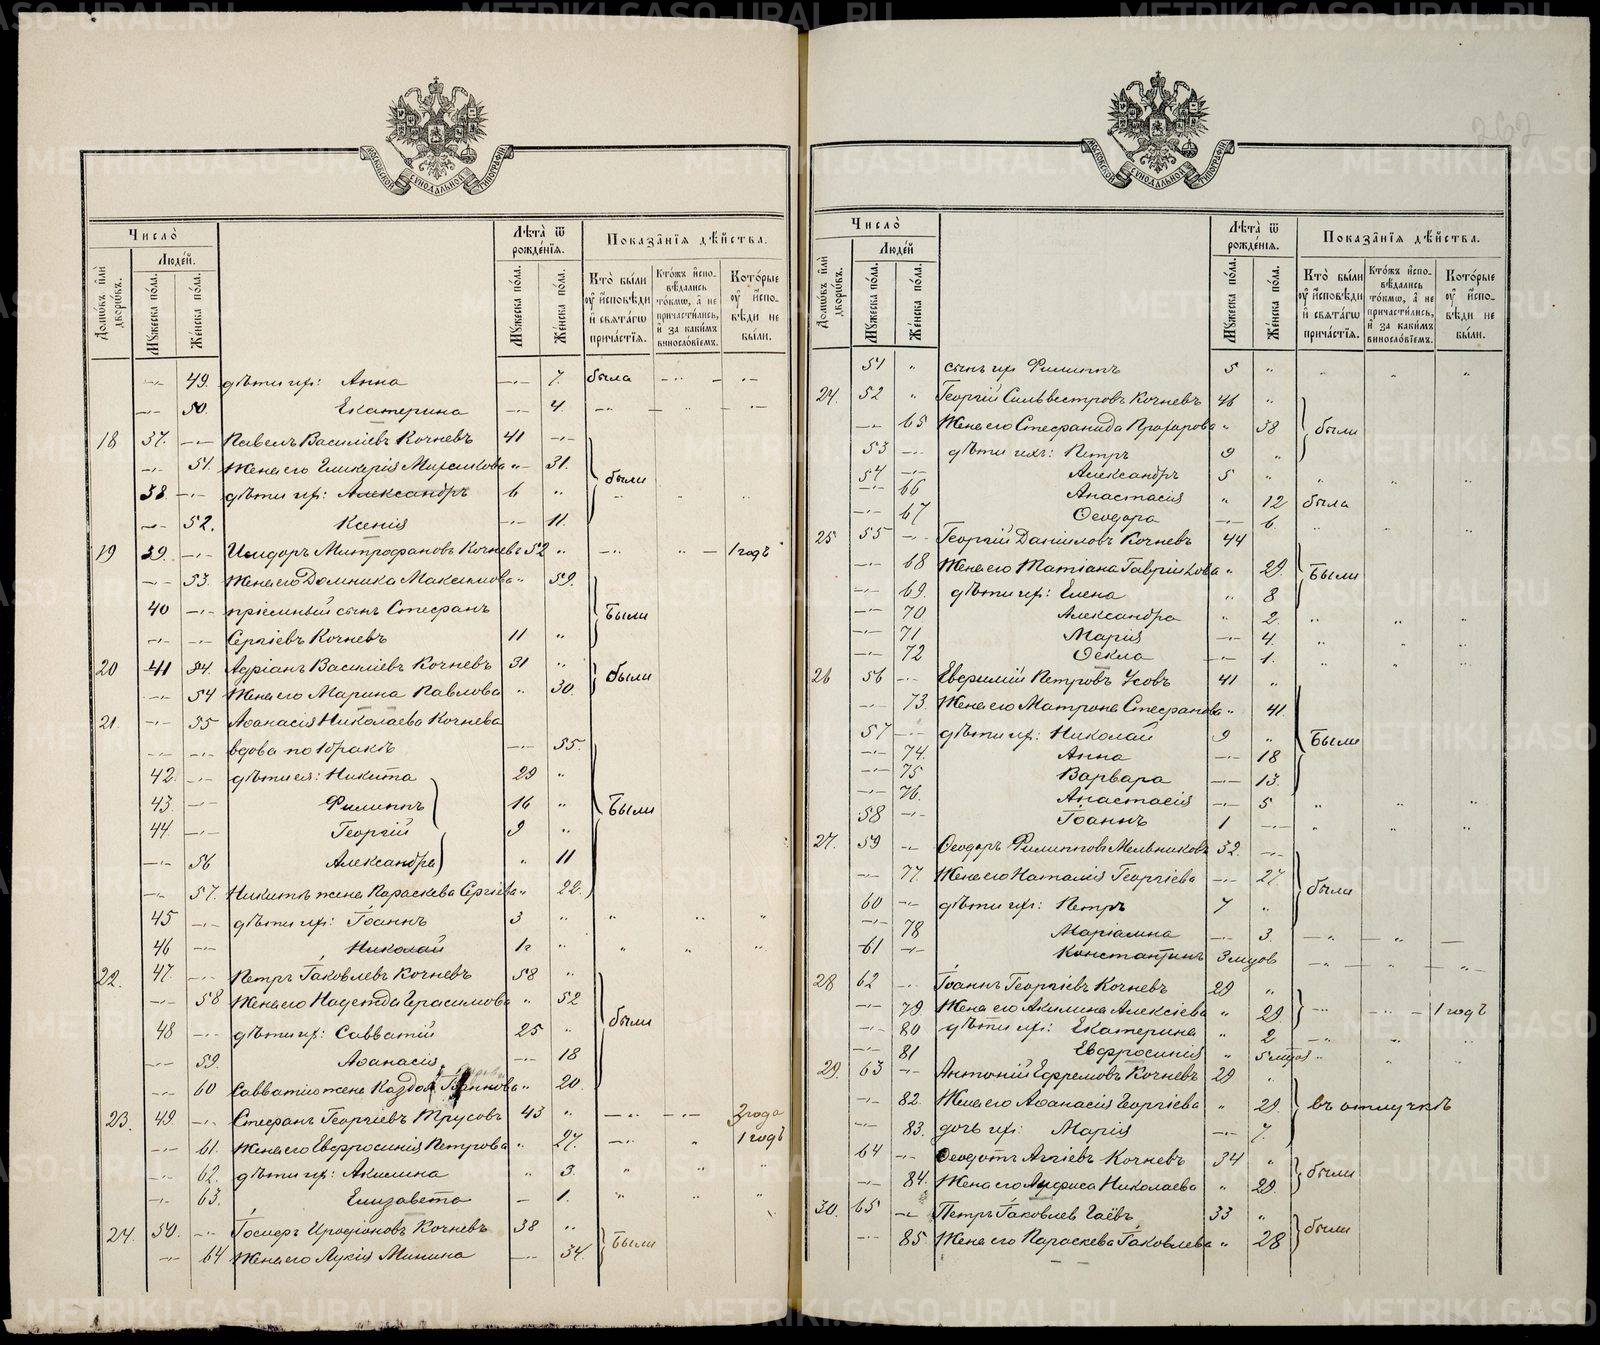 МОСКОВСКОЙ СѴНОДАЛЬНОЙ ТИПОГРАФІИ
Число̀
Людéй.
Домѡвъ и҆лѝ дворѡ́въ.
Мꙋ́жеска по́ла.
Же́нска по́ла.
Лѣта̀ ѿ рожде́нїѧ.
Мꙋ́жеска по́ла.
Же́нска по́ла.
Показа̑нїѧ дѣ́йства.
Кто̀ бы́ли ᲂу҆ и҆сповѣди и҆ свѧта́гѡ причастїѧ.
Кто́жъ и҆сповѣдались то́кмѡ, а҆ не причасти́лись, и҆ за каки́мъ винословїемъ.
Кото́рые ᲂу҆ и҆сповѣди не бы́ли.
-„- 49. дѣти их: Анна -„- 7. была -„- -„-
-„- 50. Екатерина -„- 4. -„- - -„-
18 37. -„- Павелъ Василіевъ Кочневъ 41 -„-
-„- 51. Жена его Гликерія " 31. были
38 -„- дѣти их: Александръ 6 "
-„- 52. Ксенія -„- 11.
19 39. -„- Исидоръ Митрофановъ Кочневъ 52 " -„- " - 1 годъ
-„- 53. Жена его Домника Максимова " 59.
40 -„- пріемный сынъ Стефанъ Были
-„- -„- Сергіевъ Кочневъ 11 "
20 41 Адріанъ Василіевъ Кочневъ 31 " были
-„- 54 Жена его Марина Павлова " 30.
21. -„- 55 Аѳанасія Николаева Кочнева
-„- -„- вдова по 1 бракѣ -„- 55.
42. -„- дѣти ея: Никита 29 "
43. -„- Филиппъ 16 " Были
44 -„- Георгій 9 "
-„- 56 Александра " 11
-„- 57. Никитѣ жена Параскева Сергіева " 22.
45 -„- дѣти их: Іоаннъ 3 " " " "
46 -„- Николай 1г " " " "
22. 47. -„- Петръ Іаковлевъ Кочневъ 58 "
-„- 58 Жена его Надежда Герасимова " 52 были
48 -„- дѣти их: Савватій 25 "
-„- 59. Аѳанасія -„- 18
-„- 60 Савватію жена " 20.
23. 49. -„- Стефанъ Георгіевъ Трусовъ 43 " -„- -„- 2 года
-„- 61. Жена его Евфросинія Петрова " 27. -„- " 1 годъ
-„- 62. дѣти их: Акилина -„- 3. " " "
-„- 63. Елизавета - 1. " " "
24. 50. -„- Іосифъ Кочневъ 38 " Были
-„- 64 Жена его Лукія Минина -„- 34.
МОСКОВСКОЙ СѴНОДАЛЬНОЙ ТИПОГРАФІИ
262
Число̀
Людéй
Домѡвъ и҆лѝ дворѡ́въ.
Мꙋ́жеска по́ла.
Же́нска по́ла.
Лѣта̀ ѿ рожде́нїѧ.
Мꙋ́жеска по́ла.
Же́нска по́ла.
Показа̑нїѧ дѣ́йства.
Кто̀ бы́ли ᲂу҆ и҆сповѣди и҆ свѧта́гѡ причастїѧ.
Кто́жъ и҆сповѣдались то́кмѡ, а҆ не причасти́лись, и҆ за каки́мъ винословїемъ.
Кото́рые ᲂу҆ и҆сповѣди не бы́ли.
51 " сынъ их Филиппъ 5 " " " "
24. 52 " Георгій Сильвестровъ Кочневъ 46 "
-„- 65 Жена его Стефанида " 38 были
53 -„- дѣти ихъ: Петръ 9 "
54 -„- Александръ 5 " " " "
-„- 66 Анастасія " 12 была " "
-„- 67 Ѳеодора -„- 6. " " "
25 55 -„- Георгій Даниловъ Кочневъ 44
-„- 68 Жена его Татіана Гаврилова " 29. Были
-„- 69. дѣти их: Елена " 8
-„- 70 Александра " 2. " " "
-„- 71 Марія -„- 4. " " "
-„- 72 Ѳекла -„- 1. " " "
26 56 -„- Евфимій Петровъ Усовъ 41 "
-„- 73. Жена его Матрона Стефанова " 41.
57 -„- дѣти их: Николай 9 " Были
-„- 74. Анна -„- 18
-„- 75 Варвара -„- 13.
-„- 76. Анастасія -„- 5 " " "
58 -„- Іоаннъ 1 -„- " " "
27. 59 -„- Ѳеодоръ Филипповъ Мельниковъ 32. -„-
-„- 77 Жена его Наталія Георгіева -„- 27 были
60 -„- дѣти их: Петръ 7 "
-„- 78 Маріамна -„- 3. -„- " -
61 -„- Константинъ 3 мцов -„- " -„-
28 62 -„- Іоаннъ Георгіевъ Кочневъ 29 "
-„- 79 Жена его Акилина Алексіева " 29 -„- -„- 1 годъ
-„- 80 дѣти их: Екатерина " 2
-„- 81 Евфросинія " 5 мцов " " "
29. 63 -„- Антоній Ефремовъ Кочневъ 29 "
-„- 82. Жена его Аѳанасія Георгіева " 29. въ отлучкѣ
-„- 83. дочь их: Марія -„- 7.
64 -„- Ѳеодотъ Кочневъ 34 " были
-„- 84. Жена его Николаева " 29.
30. 65 -„- Петръ Іаковлев Гаёвъ 33 " были
-„- 85 Жена его Параскева Іаковлева " 28
METRIKI.GASO-URAL.RU